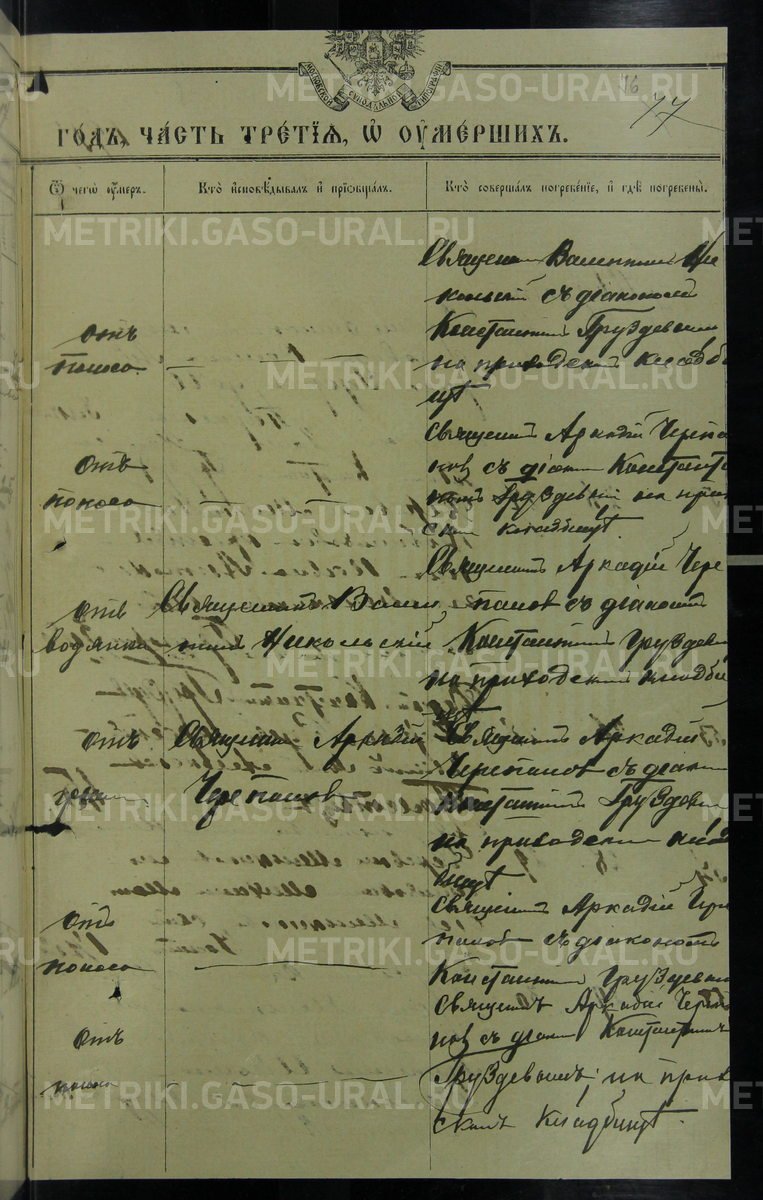 МОСКОВСКОЙ СѴНОДАЛЬНОЙ ТИПОГРАФІИ
16
77
ГОДЪ, ЧАСТЬ ТРЕТІЯ, Ѡ ОУМЕРШИХЪ.
Ѿ чегѡ оумеръ.
Кто исповѣдывалъ и прїобщалъ.
Кто совершалъ погребенїе, и гдѣ погребены.
METRIKI.GASO-URAL.RU
отъ
поноса
Священ Валентинъ Ни
кольскій съ діакономъ
Константин Груздевым
на приходском кладби
щѣ
отъ
поноса
Священникъ Аркадій Черепа
новъ съ діакон Константи
номъ Груздевым на прих
ском кладбищѣ.
отъ
водянки
Священникъ Вален
тинъ Никольскій
Священникъ Аркадій Чере
пановъ съ діакономъ
Константиномъ Груздевы
на приходском кладби
щѣ
отъ
Священник Аркадій
Черепановъ
Священникъ Аркадій
Черепановъ съ діакон
Константиномъ Груздевы
на приходском клад
бищѣ
отъ
поноса
Священникъ Аркадій Чере
пановъ съ діакономъ
Константин Груздевым
отъ
поноса
Священникъ Аркадій Черепа
новъ съ діакон Константином
Груздевымъ, на прихо
скомъ кладбищѣ.